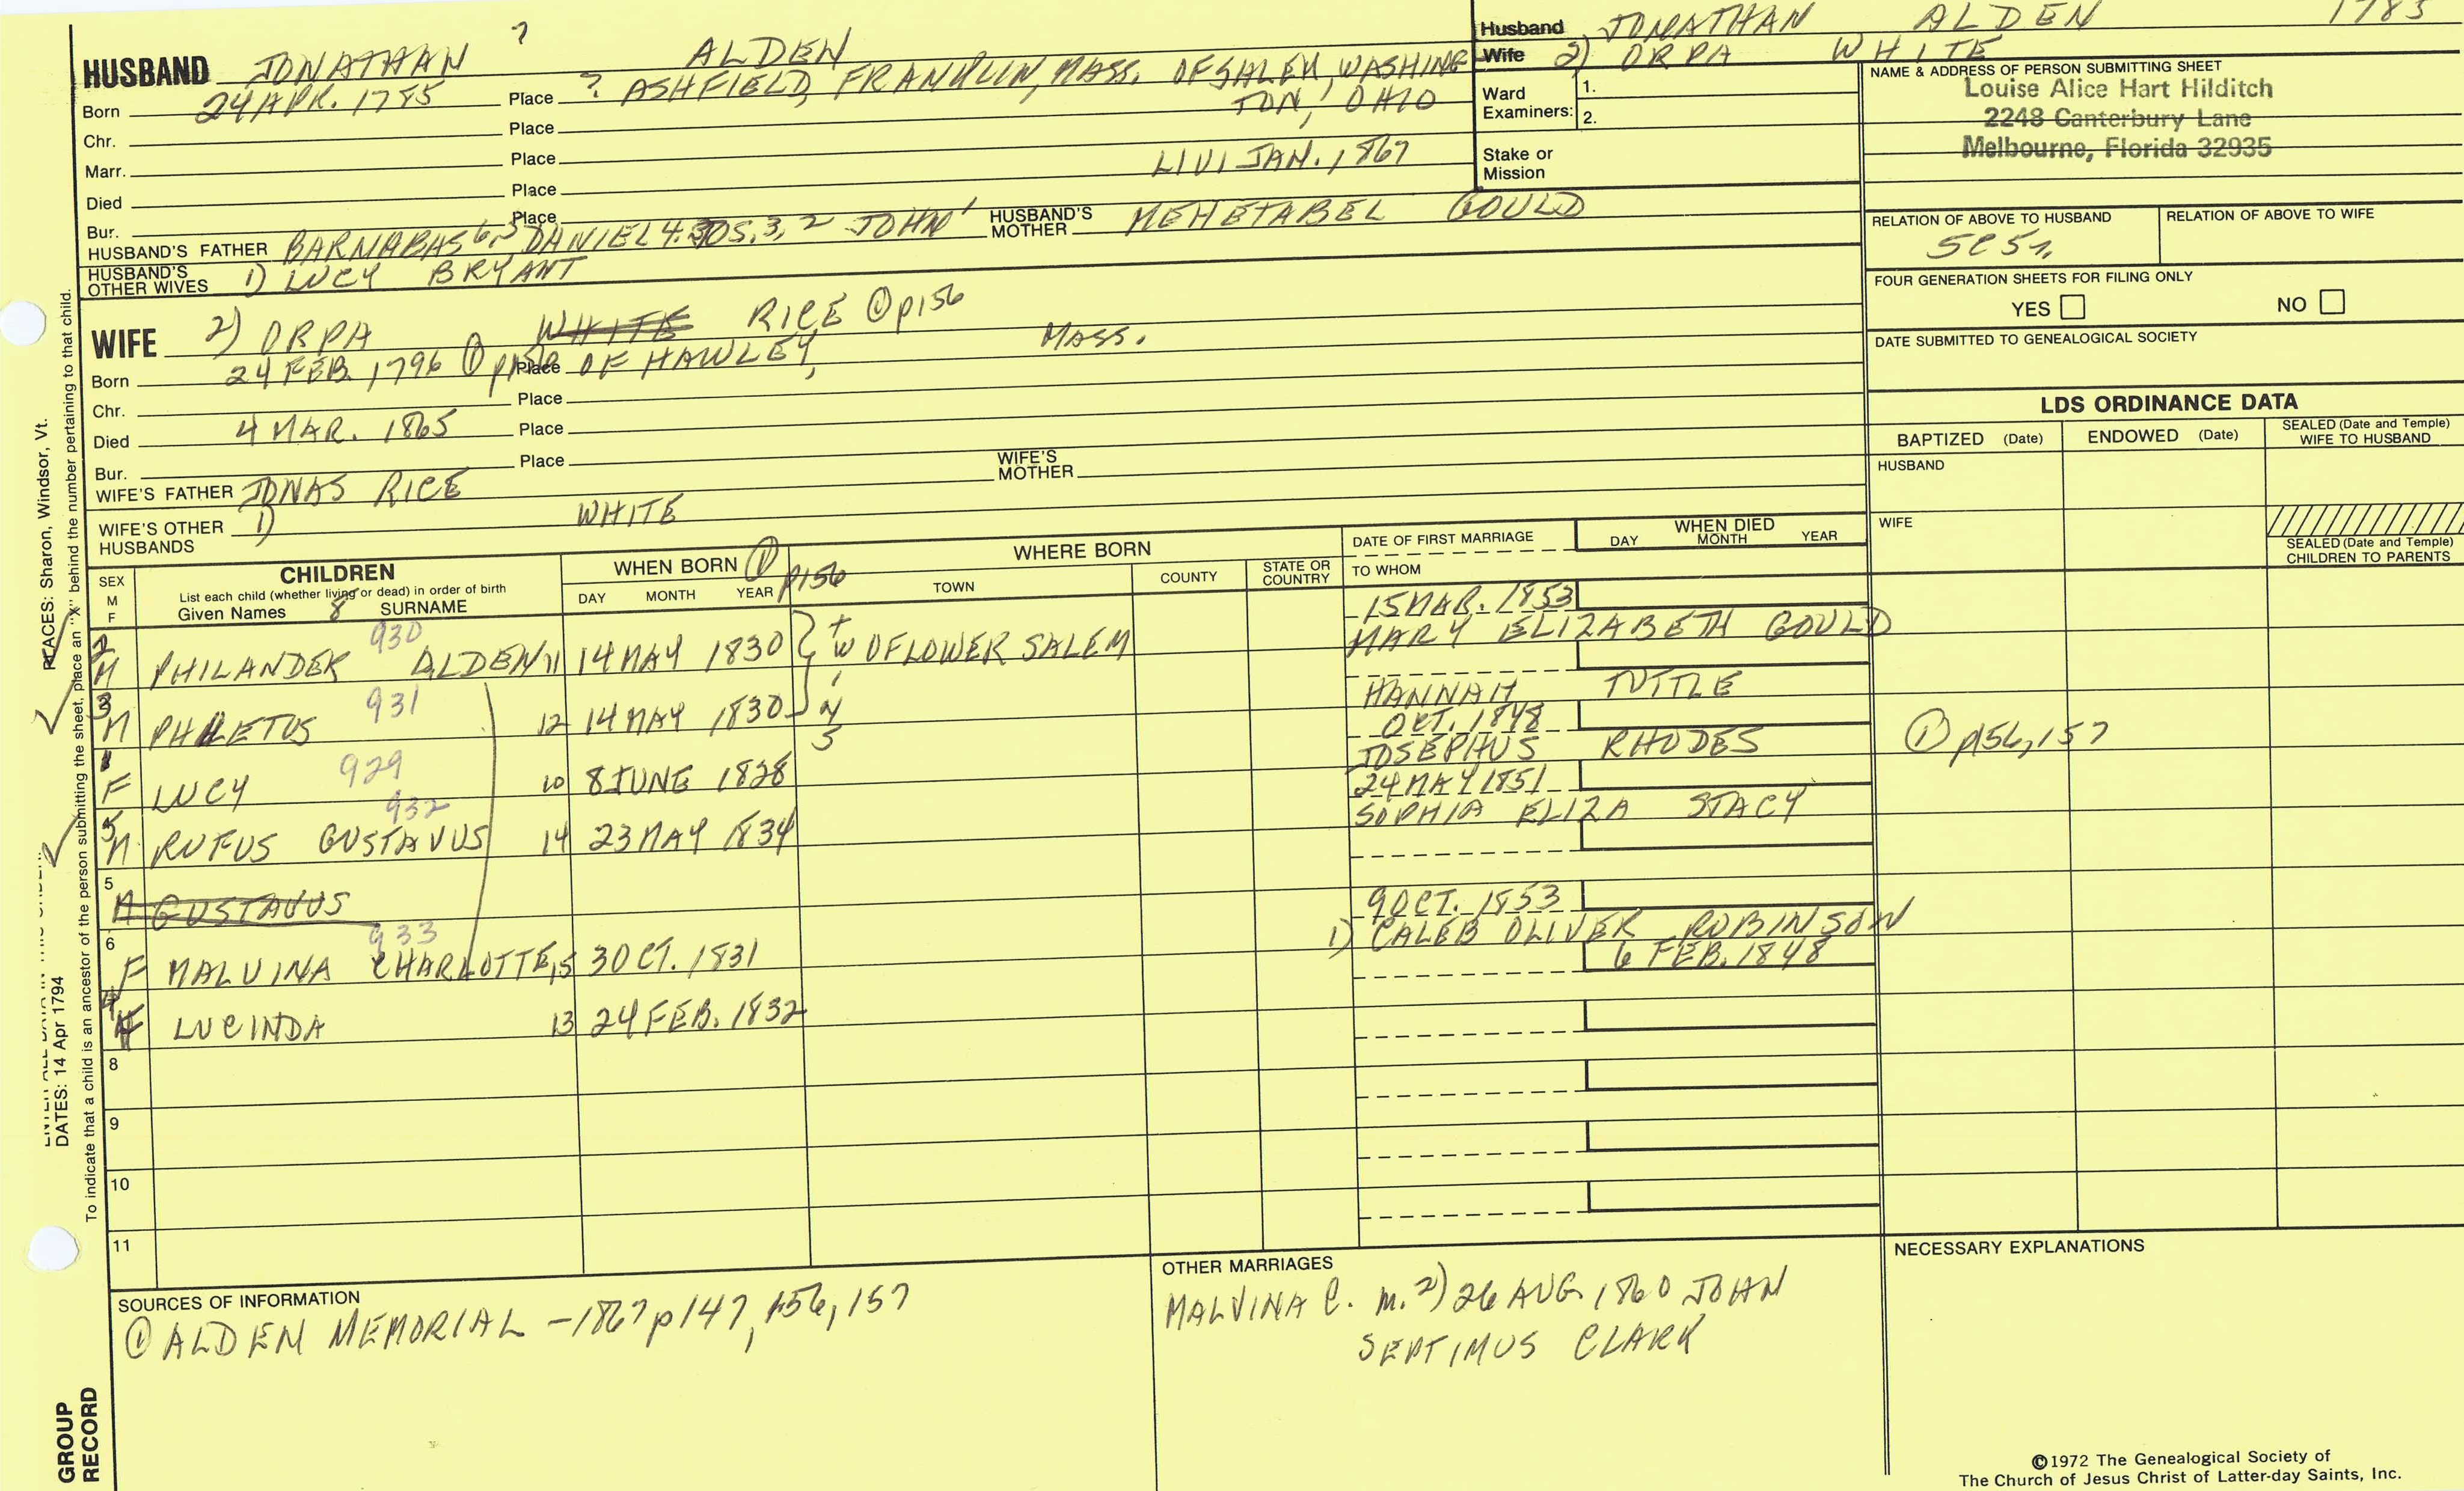 HUSBAND JONATHAN ? ALDEN
Born 24 APR. 1785 Place ? ASHFIELD, FRANKLIN, MASS. OF SALEM, WASHING
TON, OHIO
Chr. Place
Marr. Place LIVI JAN. 1867
Died Place
Bur. Place
HUSBAND'S FATHER BARNABAS 6,5 DANIEL 4. JOS. 3, 2 JOHN 1 HUSBAND'S MOTHER MEHETABEL GOULD
HUSBAND'S OTHER WIVES 1) LUCY BRYANT
WIFE 2) ORPA WHITE RICE ① p156
Born 24 FEB. 1796 ① p156 Place OF HAWLEY, MASS.
Chr. Place
Died 4 MAR. 1865 Place
Bur. Place
WIFE'S FATHER JONAS RICE WIFE'S MOTHER
WIFE'S OTHER HUSBANDS 1) WHITE
Husband JONATHAN ALDEN 1785
Wife 2) ORPA WHITE
Ward Examiners: 1.
2.
Stake or Mission
NAME & ADDRESS OF PERSON SUBMITTING SHEET
Louise Alice Hart Hilditch
2248 Canterbury Lane
Melbourne, Florida 32935
RELATION OF ABOVE TO HUSBAND RELATION OF ABOVE TO WIFE
5C5r.
FOUR GENERATION SHEETS FOR FILING ONLY
YES NO
DATE SUBMITTED TO GENEALOGICAL SOCIETY
LDS ORDINANCE DATA
BAPTIZED (Date) ENDOWED (Date) SEALED (Date and Temple) WIFE TO HUSBAND
HUSBAND
WIFE
SEALED (Date and Temple) CHILDREN TO PARENTS
SEX M F
CHILDREN
List each child (whether living or dead) in order of birth
Given Names 8 SURNAME
WHEN BORN ① p156
DAY MONTH YEAR
WHERE BORN
TOWN COUNTY STATE OR COUNTRY
DATE OF FIRST MARRIAGE
TO WHOM
WHEN DIED
DAY MONTH YEAR
15 MAR. 1853
2 M PHILANDER 930 ALDEN 11 14 MAY 1830 tw OF LOWER SALEM MARY ELIZABETH GOULD
3 M PHILETUS 931 12 14 MAY 1830 HANNAH TUTTLE
OCT. 1848
1 F LUCY 929 10 8 JUNE 1828 JOSEPHUS RHODES
24 MAY 1851
5 M RUFUS GUSTAVUS 932 14 23 MAY 1834 SOPHIA ELIZA STACY
① p156, 157
5 M GUSTAVUS
9 OCT. 1853
6 F MALVINA CHARLOTTE 933 15 3 OCT. 1831 1) CALEB OLIVER ROBINSON
6 FEB. 1848
4 F LUCINDA 13 24 FEB. 1832
8
9
10
11
SOURCES OF INFORMATION
① ALDEN MEMORIAL - 1867 p147, 156, 157
OTHER MARRIAGES
MALVINA C. m. 2) 26 AUG. 1860 JOHN
SEPTIMUS CLARK
NECESSARY EXPLANATIONS
©1972 The Genealogical Society of
The Church of Jesus Christ of Latter-day Saints, Inc.
PLACES: Sharon, Windsor, Vt.
DATES: 14 Apr 1794
To indicate that a child is an ancestor of the person submitting the sheet, place an "X" behind the number pertaining to that child.
GROUP
RECORD